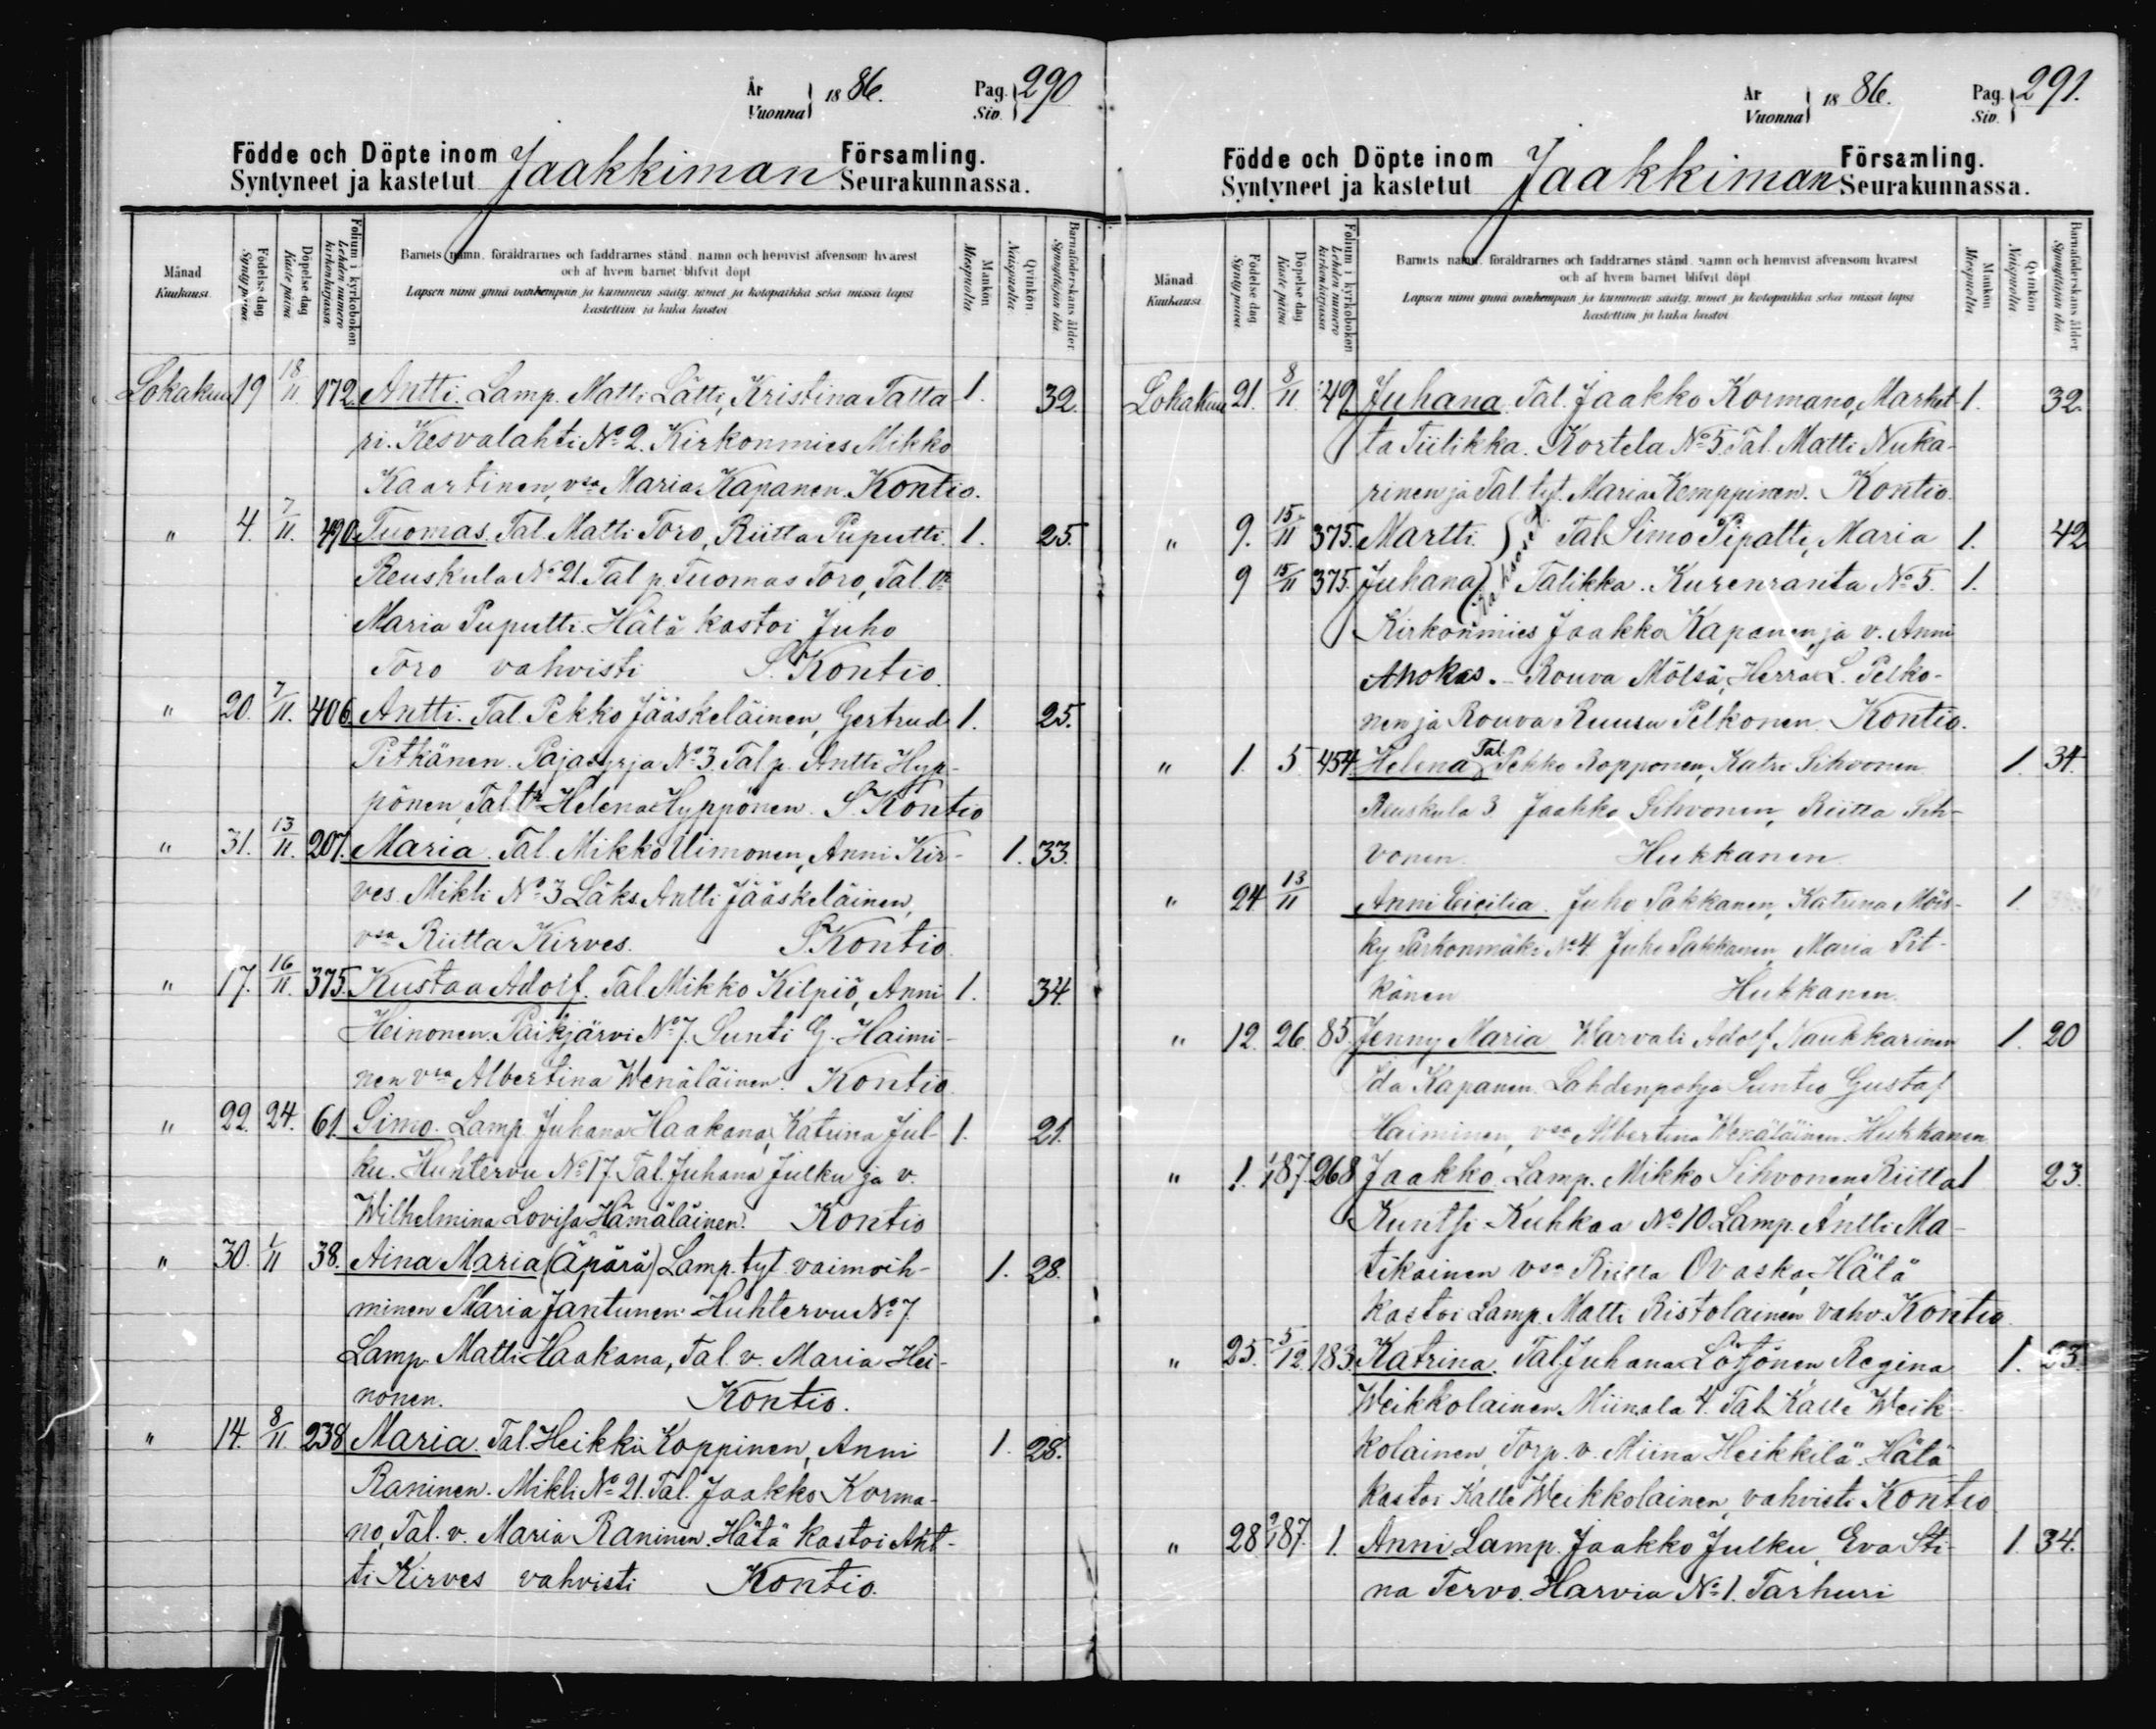 År
Vuonna
1886.
Pag.
Siv.
290
Födde och Döpte inom Jaakkiman Församling.
Syntyneet ja kastetut Seurakunnassa.
Månad
Kuukausi.
Födelse dag.
Synty päivä.
Döpelse dag
Kaste päivä
Folium i kyrkoboken
Lehden numero kirkonkirjassa.
Barnets namn, föräldrarnes och faddrarnes stånd, namn och hemvist äfvensom hvarest
och af hvem barnet blifvit döpt
Lapsen nimi ynnä vanhempain ja kummein sääty, nimet ja kotopaikka sekä missä lapsi
kastettiin ja kuka kastoi
Mankön
Miespuolia.
Qvinkön
Naispuolia.
Barnaföderskans ålder
Synnyttäjän ikä
Lokakuu 19 18/11. 172. Antti. Lamp. Matti Lätti, Kristina Tatta- 1. 32.
ri. Kesvalahti No 2. Kirkonmies Mikko
Kaartinen, vsa Maria Kapanen. Kontio.
" 4. 7/11. 490. Tuomas. Tal. Matti Toro, Riitta Puputti. 1. 25.
Reuskula No 21. Tal. p. Tuomas Toro, Tal. tr
Maria Puputti. Hätä kastoi Juho
Toro vahvisti S. Kontio.
" 20. 7/11. 406. Antti. Tal. Pekko Jääskeläinen, Gertrud 1. 25.
Pitkänen. Pajasyrja No 3. Tal. p. Antti Hyp-
pönen, Tal. tr Helena Hyppönen. S. Kontio
" 31. 13/11. 207. Maria. Tal. Mikko Uimonen, Anni Kir- 1. 33.
ves. Mikli No 3 Läks. Antti Jääskeläinen,
vsa Riitta Kirves. S. Kontio.
" 17. 16/11. 375. Kustaa Adolf. Tal. Mikko Kilpiö, Anni 1. 34.
Heinonen. Paikjärvi No 7. Sunti G. Haimi-
nen vsa Albertina Wenäläinen. Kontio.
" 22. 24. 61. Simo. Lamp. Juhana Haakana, Katrina Jul- 1. 21.
ku. Huhtervu No 17. Tal. Juhana Julku ja v.
Wilhelmina Lovisa Hämäläinen. Kontio
" 30. 1/11 38. Aina Maria (Äpärä) Lamp. tyt. vaimoih- 1. 28.
minen Maria Jantunen. Huhtervu No 7.
Lamp. Matti Haakana, Tal. v. Maria Hei-
nonen. Kontio.
" 14. 8/11. 238. Maria. Tal. Heikki Koppinen, Anni 1. 28.
Raninen. Mikli No 21. Tal. Jaakko Korma-
no, Tal. v. Maria Raninen. Hätä kastoi Ant-
ti Kirves vahvisti Kontio.
År
Vuonna
1886.
Pag.
Siv.
291.
Födde och Döpte inom Jaakkiman Församling.
Syntyneet ja kastetut Seurakunnassa.
Månad
Kuukausi
Födelse dag.
Synty päivä.
Döpelse dag
Kaste päivä
Folium i kyrkoboken
Lehden numero kirkonkirjassa
Barnets namn, föräldrarnes och faddrarnes stånd, namn och hemvist äfvensom hvarest
och af hvem barnet blifvit döpt.
Lapsen nimi ynnä vanhempain ja kummein sääty, nimet ja kotopaikka sekä missä lapsi
kastettiin ja kuka kastoi
Mankön
Miespuolia
Qvinkön
Naispuolia.
Barnaföderskans ålder
Synnyttäjän ikä
Lokakuu 21. 8/11 49 Juhana. Tal. Jaakko Kormano, Market- 1. 32.
ta Tiilikka. Kortela No 5. Tal. Matti Nuka-
rinen ja Tal. tyt. Maria Kemppinen. Kontio.
" 9. 15/11 375. Martti. Tal. Simo Pipatti, Maria 1. 42
9 15/11 375. Juhana Talikka. Kurenranta No 5. 1.
Kirkonmies Jaakko Kapanen, ja v. Anni
Ahokas. - Rouva Mölsä, Herra L. Pelko-
nen ja Rouva Ruusu Pelkonen. Kontio.
" 1. 5 454. Helena Tal. Pekko Ropponen, Katri Sihvonen 1. 34.
Reuskula 3. Jaakko Sihvonen, Riitta Sih-
vonen. Hukkanen.
" 24 13/11 Anni Ceicilia. Juho Pakkanen, Katrina Möis- 1.
ky Parkonmäki No 4 Juho Pakkanen, Maria Pit-
känen Hukkanen.
" 12. 26. 85. Jenny Maria Warvali Adolf Naukkarinen 1. 20
Ida Kapanen. Lahdenpohja Suntio Gustaf
Haiminen, vsa Albertina Wenäläinen. Hukkanen
" 1. 1/1 87. 268 Jaakko. Lamp. Mikko Sihvonen, Riitta 1 23.
Kuntsi Kuhkaa No 10 Lamp. Antti Ma-
tikainen vsa Riitta Ovaska, Hätä
kastoi Lamp. Matti Ristolainen vahv. Kontio.
" 25. 5/12. 183. Katrina. Tal. Juhana Lötjönen Regina 1. 23.
Weikkolainen. Miinala 4. Tal. Kalle Weik-
kolainen, Torp. v. Miina Heikkilä. Hätä
kastoi Kalle Weikkolainen, vahvisti Kontio
" 28 2/1 87. 1. Anni. Lamp. Jaakko Julku, Eva Sti- 1. 34.
na Tervo. Harvia No 1. Tarhuri